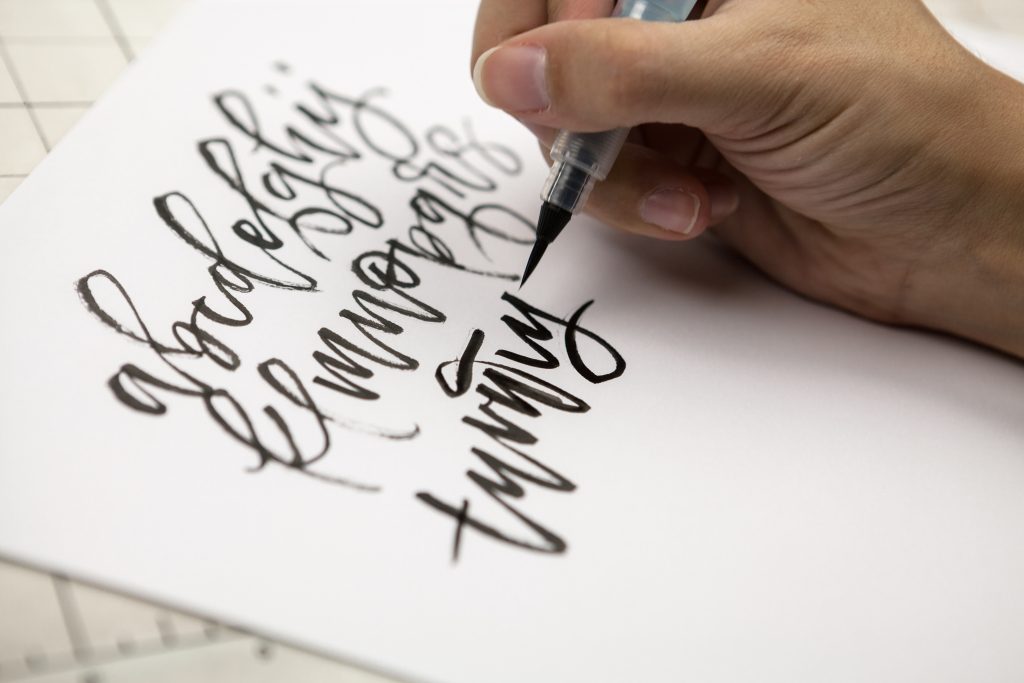 abcdefghij
klmnopqrs
tuvwxy